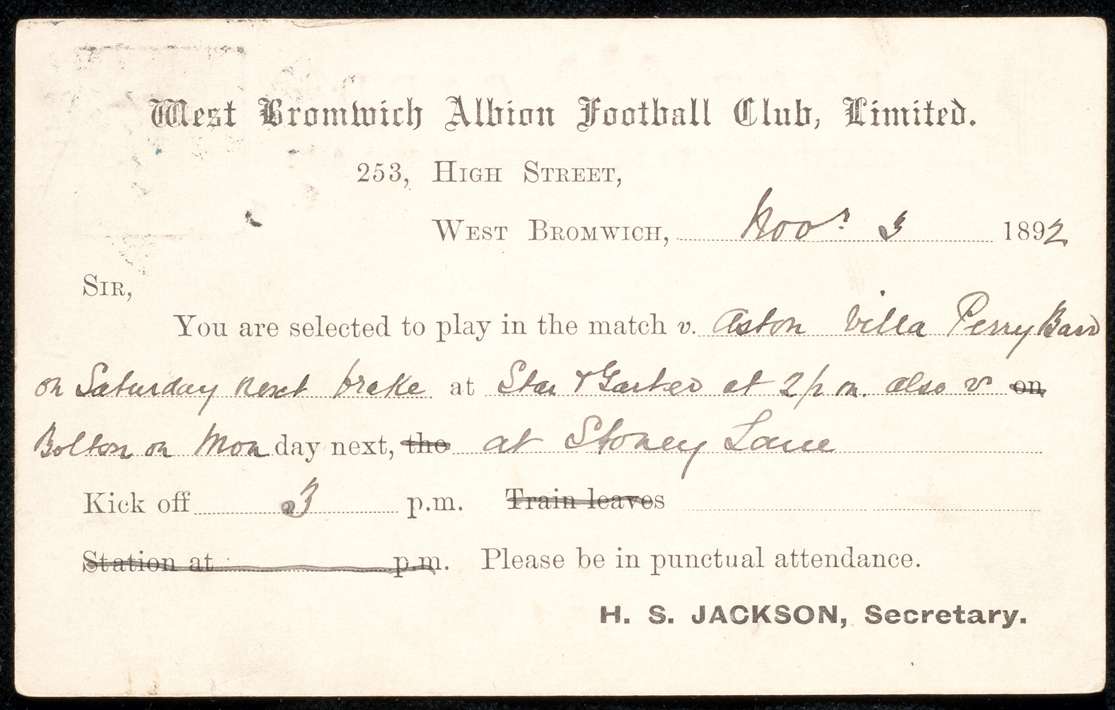 West Bromwich Albion Football Club, Limited.
253, High Street,
West Bromwich, Novr 3 1892
Sir,
You are selected to play in the match v. Aston Villa Perry Barr
on Saturday next brake at Star & Garter at 2 p m. also v on
Bolton on Monday next, the at Stoney Lane
Kick off 3 p.m. Train leaves
Station at p.m. Please be in punctual attendance.
H. S. JACKSON, Secretary.